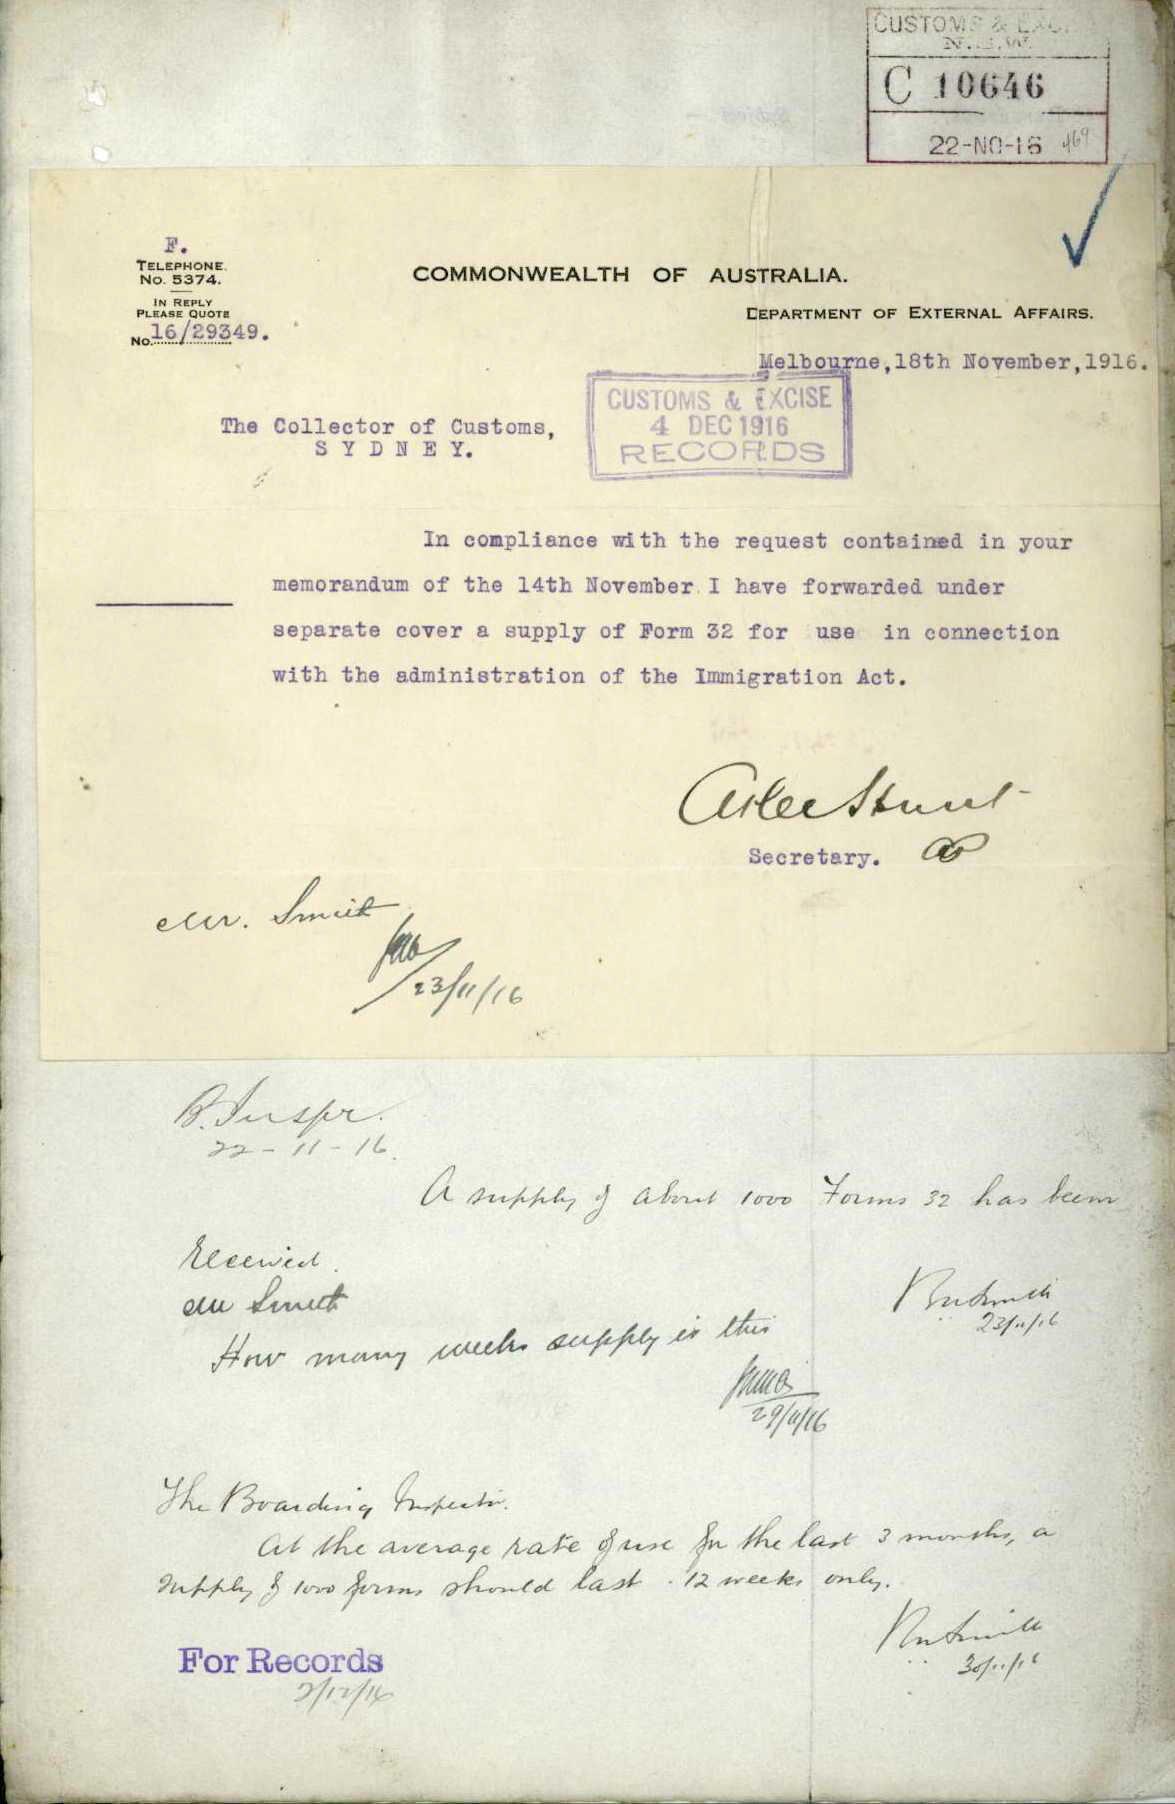 CUSTOMS & EXC
N.S.W.
C 10646
22-NO-16 469
F.
TELEPHONE.
No. 5374.
IN REPLY
PLEASE QUOTE
No. 16/29349.
COMMONWEALTH OF AUSTRALIA.
DEPARTMENT OF EXTERNAL AFFAIRS.
Melbourne, 18th November, 1916.
CUSTOMS & EXCISE
4 DEC 1916
RECORDS
The Collector of Customs,
S Y D N E Y.
In compliance with the request contained in your
memorandum of the 14th November I have forwarded under
separate cover a supply of Form 32 for use in connection
with the administration of the Immigration Act.
Atlee Hunt
Secretary.
Mr. Smith
23/11/16
B. Inspr.
22-11-16.
A supply of about 1000 Forms 32 has been
received.
Smith
23/11/16
Mr Smith
How many weeks supply is this
29/11/16
The Boarding Inspector.
At the average rate of use for the last 3 months, a
supply of 1000 forms should last 12 weeks only.
Smith
30/11/16
For Records
2/12/16